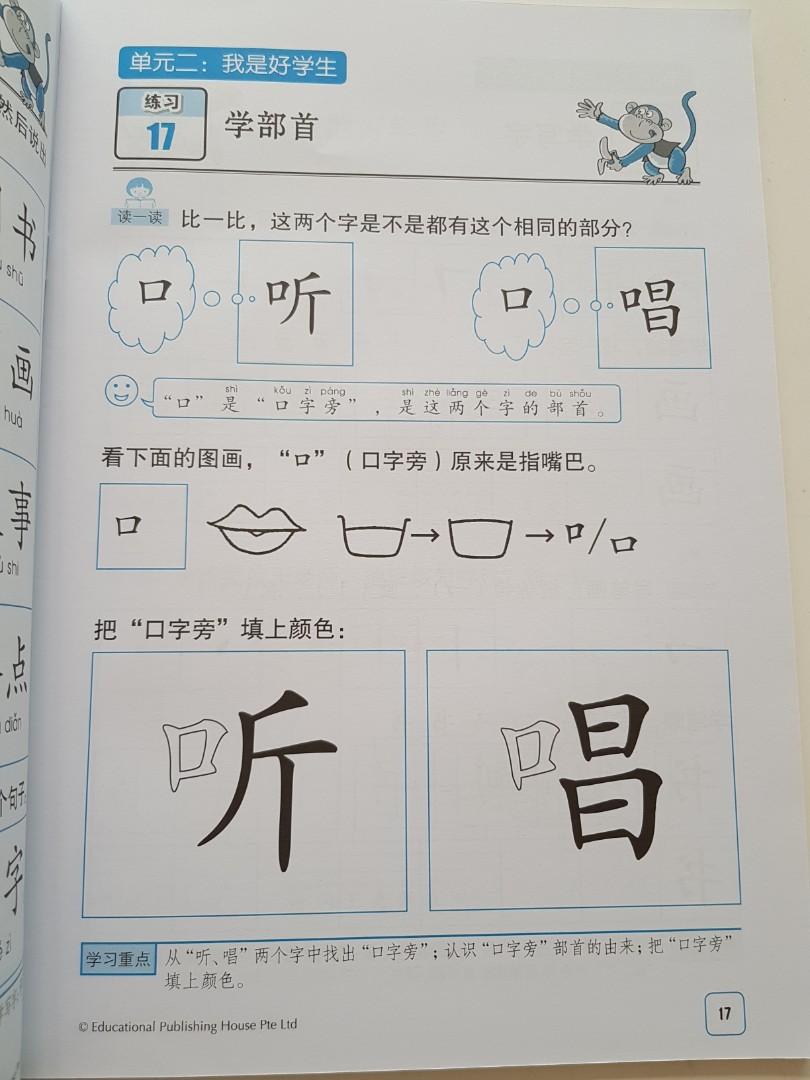 单元二：我是好学生
练习
17
学部首
然后说出
书
shū
画
huà
事
shì
点
diǎn
个句子
字
zì
读一读
比一比，这两个字是不是都有这个相同的部分？
口 听 口 唱
shì kǒu zì páng shì zhè liǎng gè zì de bù shǒu
“口” 是 “口字旁”，是这两个字的部首。
看下面的图画，“口”（口字旁）原来是指嘴巴。
口 → → 口/口
把“口字旁”填上颜色：
听 唱
学习重点
从“听、唱”两个字中找出“口字旁”；认识“口字旁”部首的由来；把“口字旁”
填上颜色。
© Educational Publishing House Pte Ltd
17